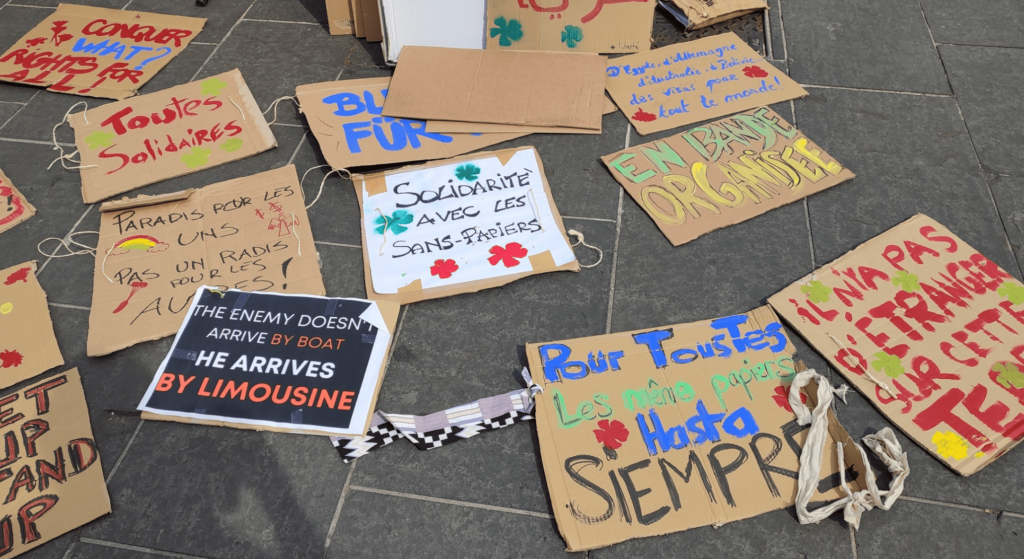 CONQUER
WHAT?
RIGHTS FOR
ALL!
Liberté
D'Égypte, d'Allemagne
d'Australie, à Bolivie
des visas pour
tout le monde!
Toutes
Solidaires
FÜR
EN BANDE
ORGANISÉE
SOLIDARITÉ
AVEC LES
SANS-PAPIERS
PARADIS POUR LES
UNS
PAS UN RADIS
POUR LES
AU !
THE ENEMY DOESN'T
ARRIVE BY BOAT
HE ARRIVES
BY LIMOUSINE
POUR TOUSTES
Les même papiers
Hasta
SIEMPRE
IL N'YA PAS
D'ÉTRANGER
SUR CETTE
TER
ET
UP
TAND
UP